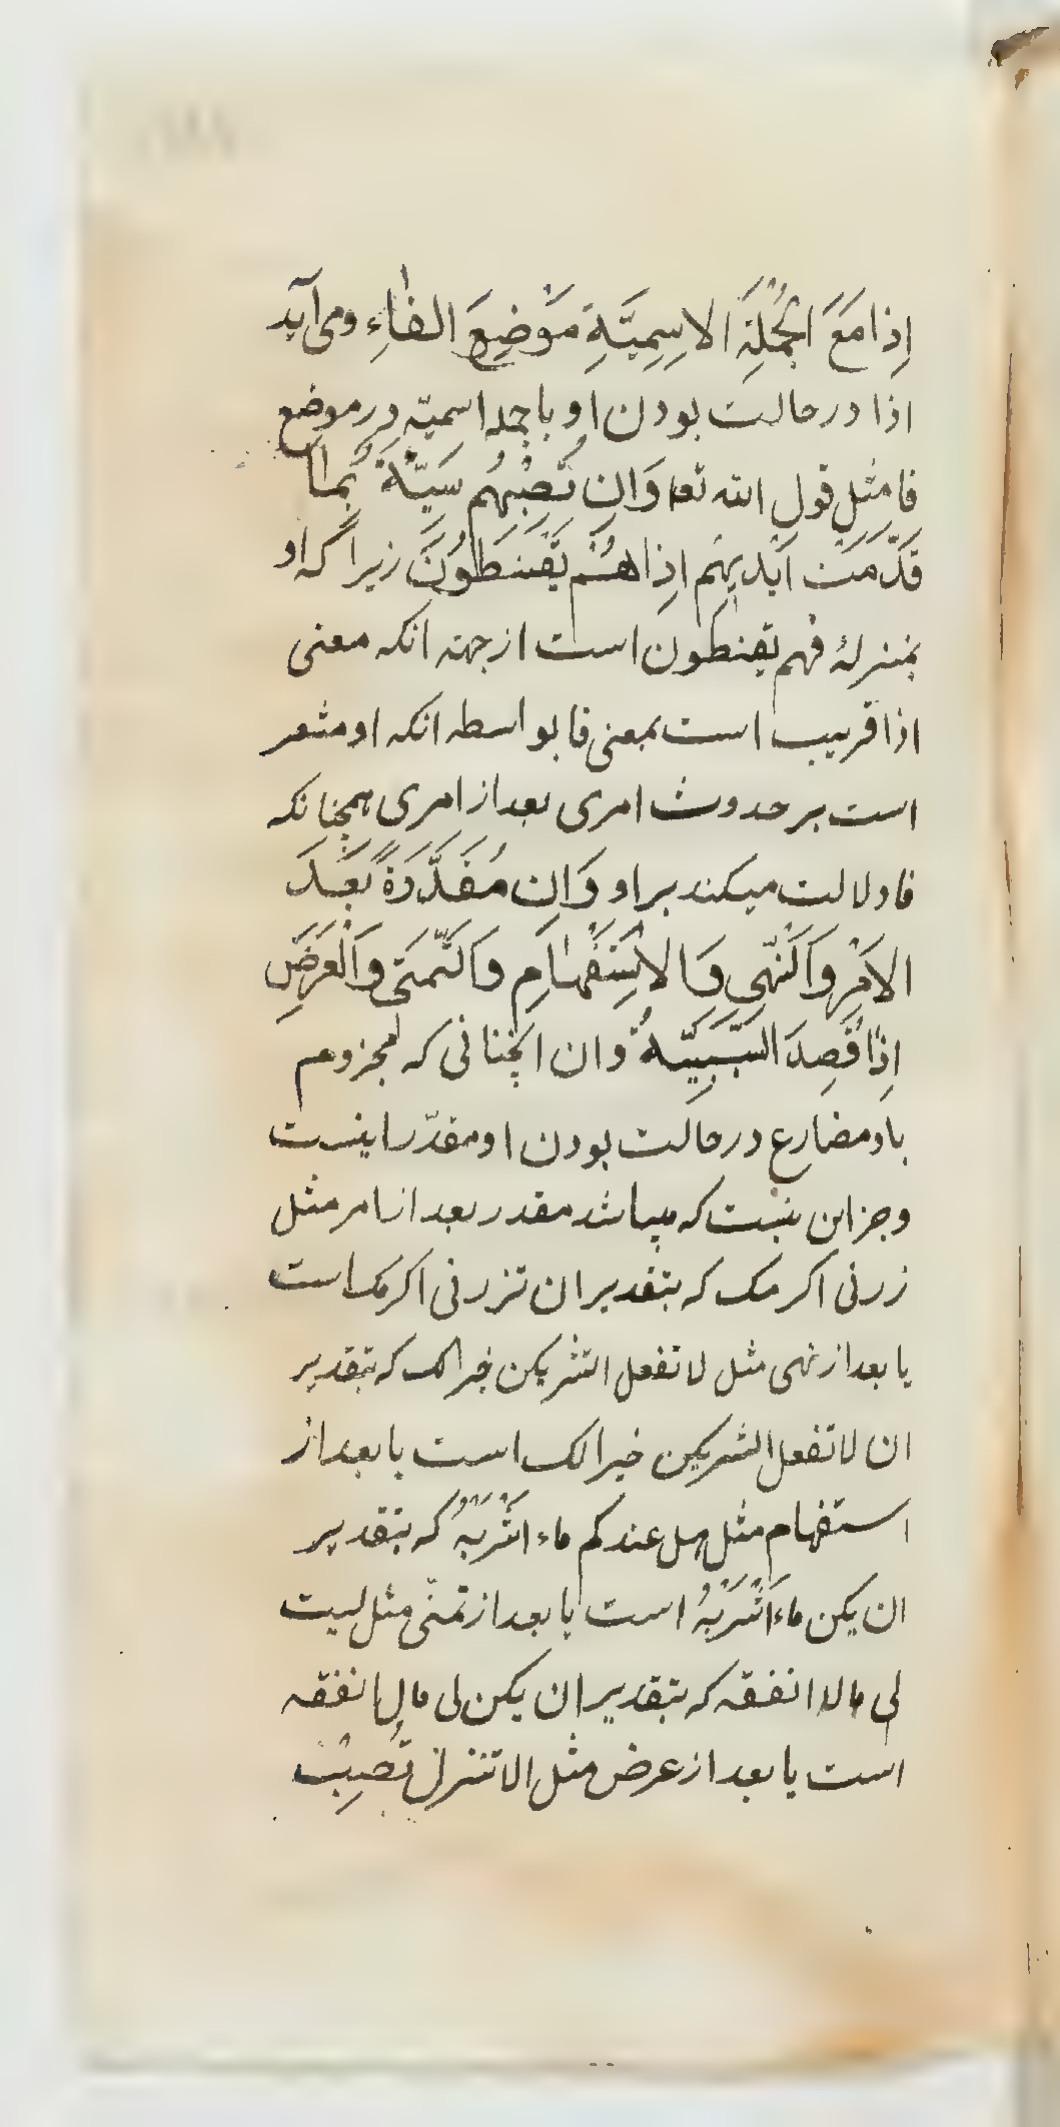 اِذا مَعَ الجُمْلَةِ الاِسِمِيَّةِ مَوْضِعَ الفٰاءِ ومی آید
اذا در حالت بودن او با جمله اسمیّه در موضع
فا مثل قول الله تعا وَاِن تُصِبْهُم سَیِّئَةٌ بِمٰا
قَدَّمَت اَیْدیِهِم اِذا هُمْ یَقْنَطُونَ زیرا که او
بمنزلهٔ فهم یقنطون است از جهته انکه معنی
اذا قریب است بمعنی فا بواسطه انکه او مشعر
است بر حدوث امری بعد از امری همچنانکه
فا دلالت میکند بر او وَاِن مُقَدَّرَةً بَعْدَ
الاَمْرِ وَالنَّهیِ وَالاِسْتِفْهٰامِ وَالتَّمَنّی وَالْعَرْضِ
اِذٰا قُصِدَ السَّبَبِیَّةُ و ان انچنانی که مجزوم
باو مضارع در حالت بودن او مقدّر اینست
وجز این نیست که میباشد مقدر بعد از امر مثل
زرنی اکرمک که بتقدیر ان تزرنی اکرمک است
یا بعد از نهی مثل لا تفعل الشر یکن خیرا لک که بتقدیر
ان لا تفعل الشر یکن خیرا لک است یا بعد از
استفهام مثل هل عندکم ماء اشْرَبْهُ که بتقدیر
ان یکن ماء اَشْرَبْهُ است یا بعد از تمنّی مثل لیت
لی مالا انفقه که بتقدیر ان یکن لی مال انفقه
است یا بعد از عرض مثل الا تنزل تُصِبْ